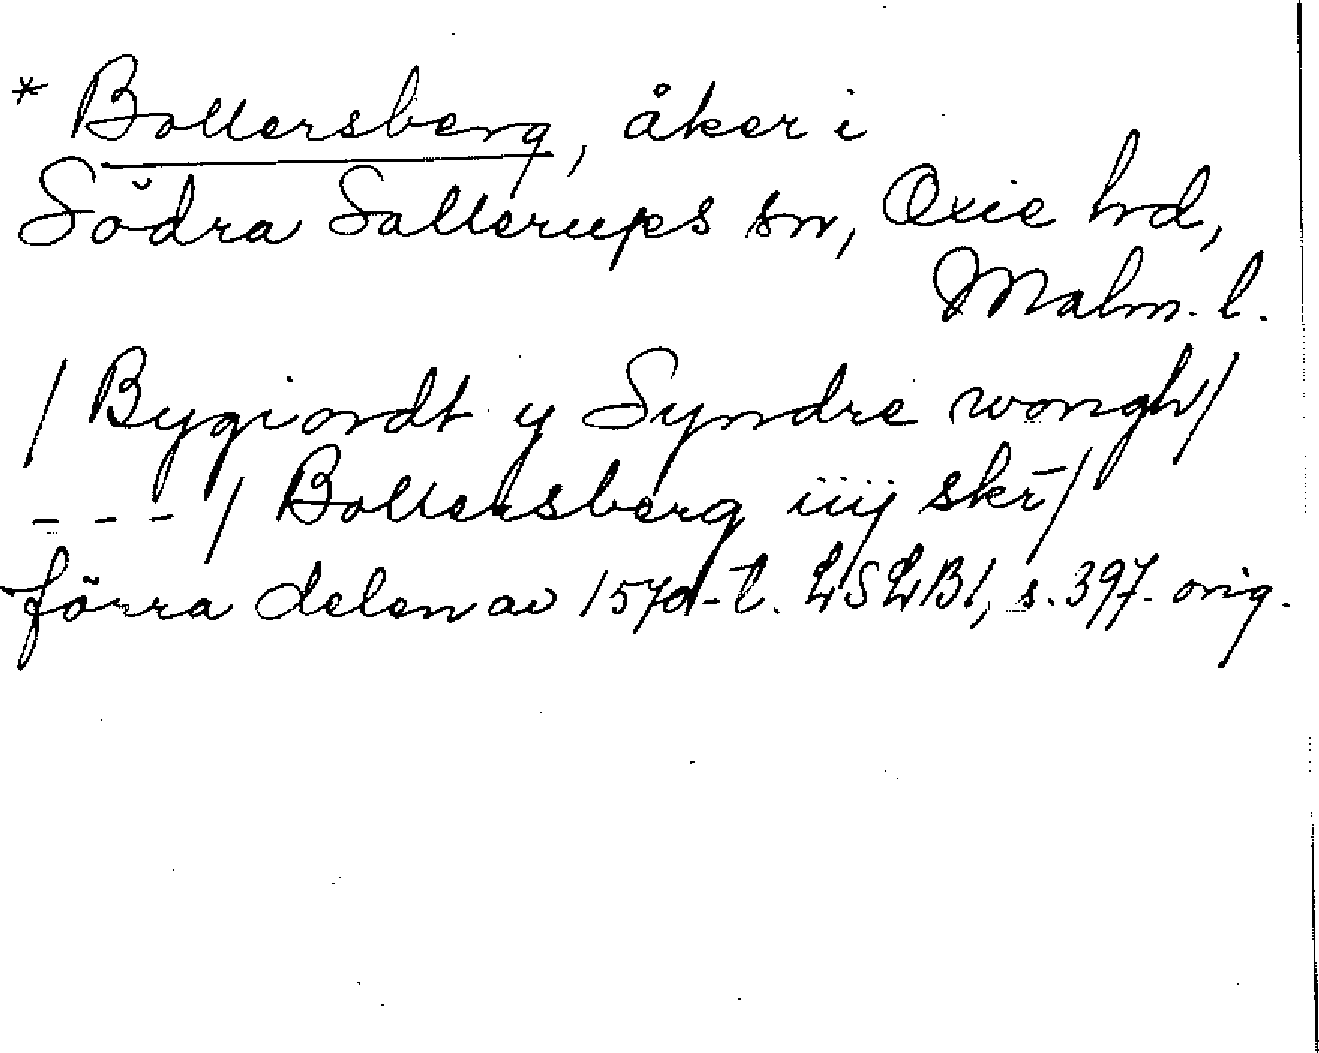 * Bollersberg, åker i
Södra Sallerups sn, Oxie hd,
Malm. l.
/ Bygiordt y Syndre wongh/
- - - / Bollersberg iiij skr̄/
förra delen av 1570-t. LSLB1, s. 397. orig.